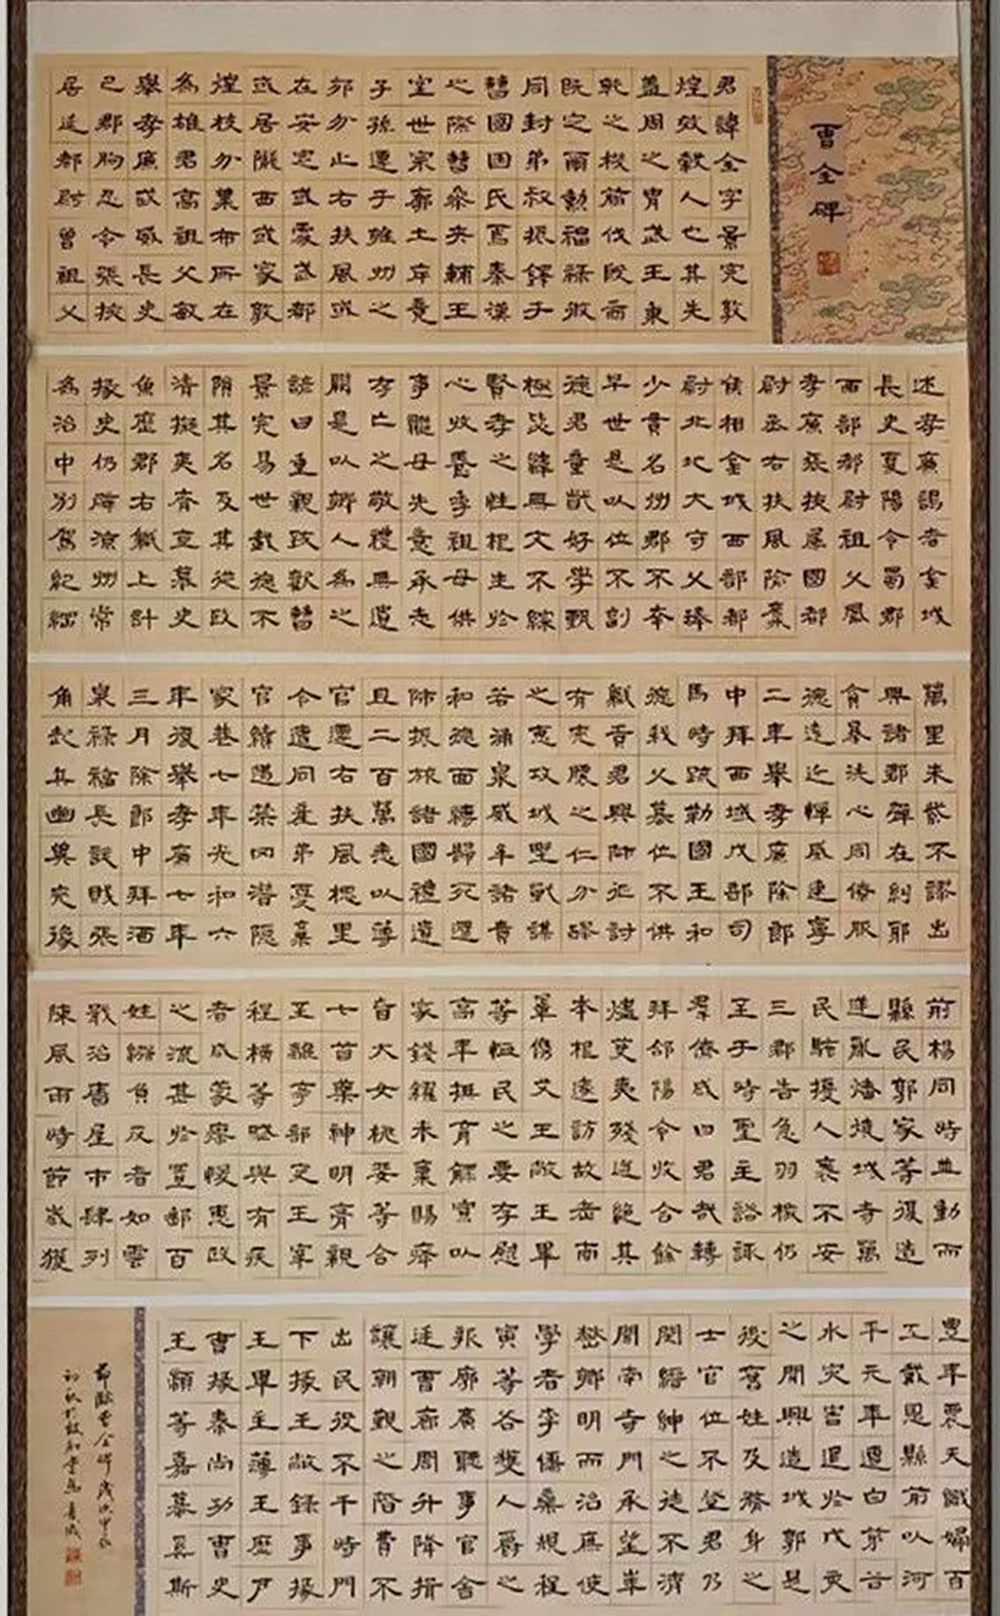 曹全碑
君諱全字景完敦
煌效穀人也其先
蓋周之胄武王秉
乾之機翦伐殷商
既定爾勳福祿攸
同封弟叔振鐸于
曹國因氏焉秦漢
之際曹參夾輔王
室世宗廓土斥竟
子孫遷于雍州之
郊分止右扶風或
在安定或處武都
或居隴西或家敦
煌枝分葉布所在
為雄君高祖父敏
舉孝廉武威長史
巴郡朐忍令張掖
居延都尉曾祖父
述孝廉謁者金城
長史夏陽令蜀郡
西部都尉祖父鳳
孝廉張掖屬國都
尉丞右扶風隃麋
侯相金城西部都
尉北地大守父琫
少貫名州郡不幸
早世是以位不副
德君童齔好學甄
極毖緯無文不綜
賢孝之性根生於
心收養季祖母供
事繼母先意承志
存亡之敬禮無遺
闕是以鄉人為之
諺曰重親致歡曹
景完易世載德不
隕其名及其從政
清擬夷齊直慕史
魚歷郡右職上計
掾史仍辟涼州常
為治中別駕紀綱
萬里朱紫不謬出
典諸郡彈枉糾邪
貪暴洗心同僚服
德遠近憚威建寧
二年舉孝廉除郎
中拜西域戊部司
馬時疏勒國王和
德弒父篡位不供
職貢君興師征討
有兗膿之仁分醪
之惠攻城野戰謀
若涌泉威牟諸賁
和德面縛歸死還
師振旅諸國禮遺
且二百萬悉以簿
官遷右扶風槐里
令遭同產弟憂棄
官續遇禁冈潛隱
家巷七年光和六
年復舉孝廉七年
三月除郎中拜酒
泉祿福長訞賊張
角起兵幽冀兗豫
荊楊同時並動而
縣民郭家等復造
逆亂燔燒城寺萬
民騷擾人褱不安
三郡告急羽檄仍
至于時聖主諮諏
群僚咸曰君哉轉
拜郃陽令收合餘
燼芟夷殘迸絕其
本根遂訪故老商
量儁艾王敞王畢
等恤民之要存慰
高年撫育鰥寡以
家錢糴米粟賜癃
盲大女桃婓等合
七首藥神明膏親
至離亭部吏王宰
程橫等賦與有疾
者咸蒙瘳悛惠政
之流甚於置郵百
姓繦負反者如雲
戢治廧屋市肆列
陳風雨時節歲獲
豐年農夫織婦百
工戴恩縣前以河
平元年遭白茅谷
水災害退於戊亥
之間興造城郭是
後舊姓及脩身之
士官位不登君乃
閔縉紳之徒不濟
開南寺門承望華
嶽鄉明而治庶使
學者李儒欒規程
寅等各獲人爵之
報廓廣聽事官舍
廷曹廊閤升降揖
讓朝覲之階費不
出民役不干時門
下掾王敞錄事掾
王畢主簿王歷戶
曹掾秦尚功曹史
王顓等嘉慕奚斯
節臨曹全碑
初秋於